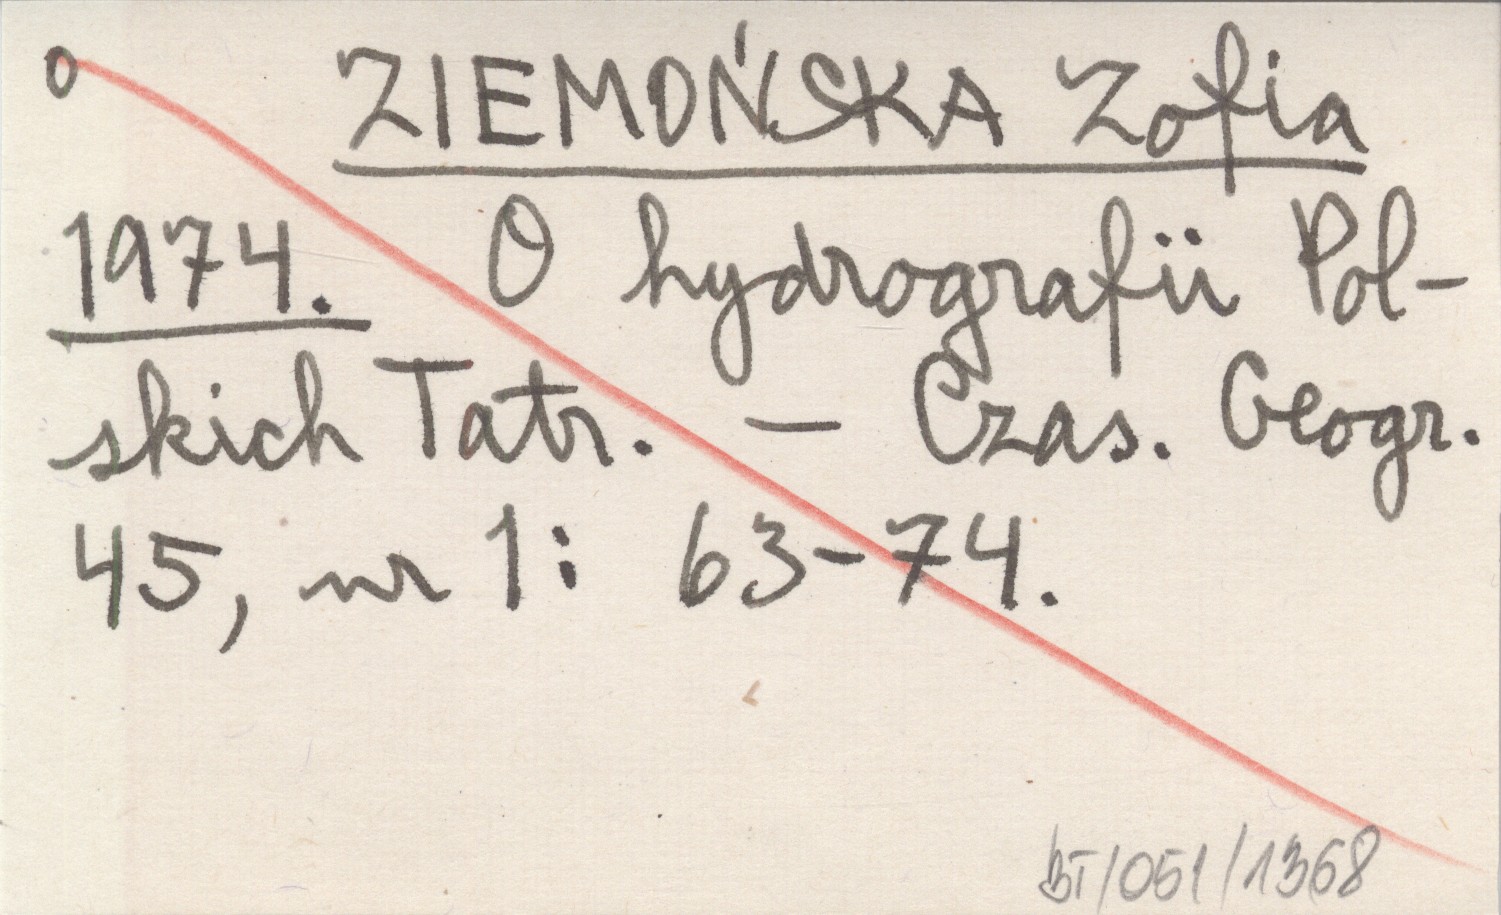 o ZIEMOŃSKA Zofia
1974. O hydrografii Pol-
skich Tatr. — Czas. Geogr.
45, nr 1: 63-74.
BT/051/1368